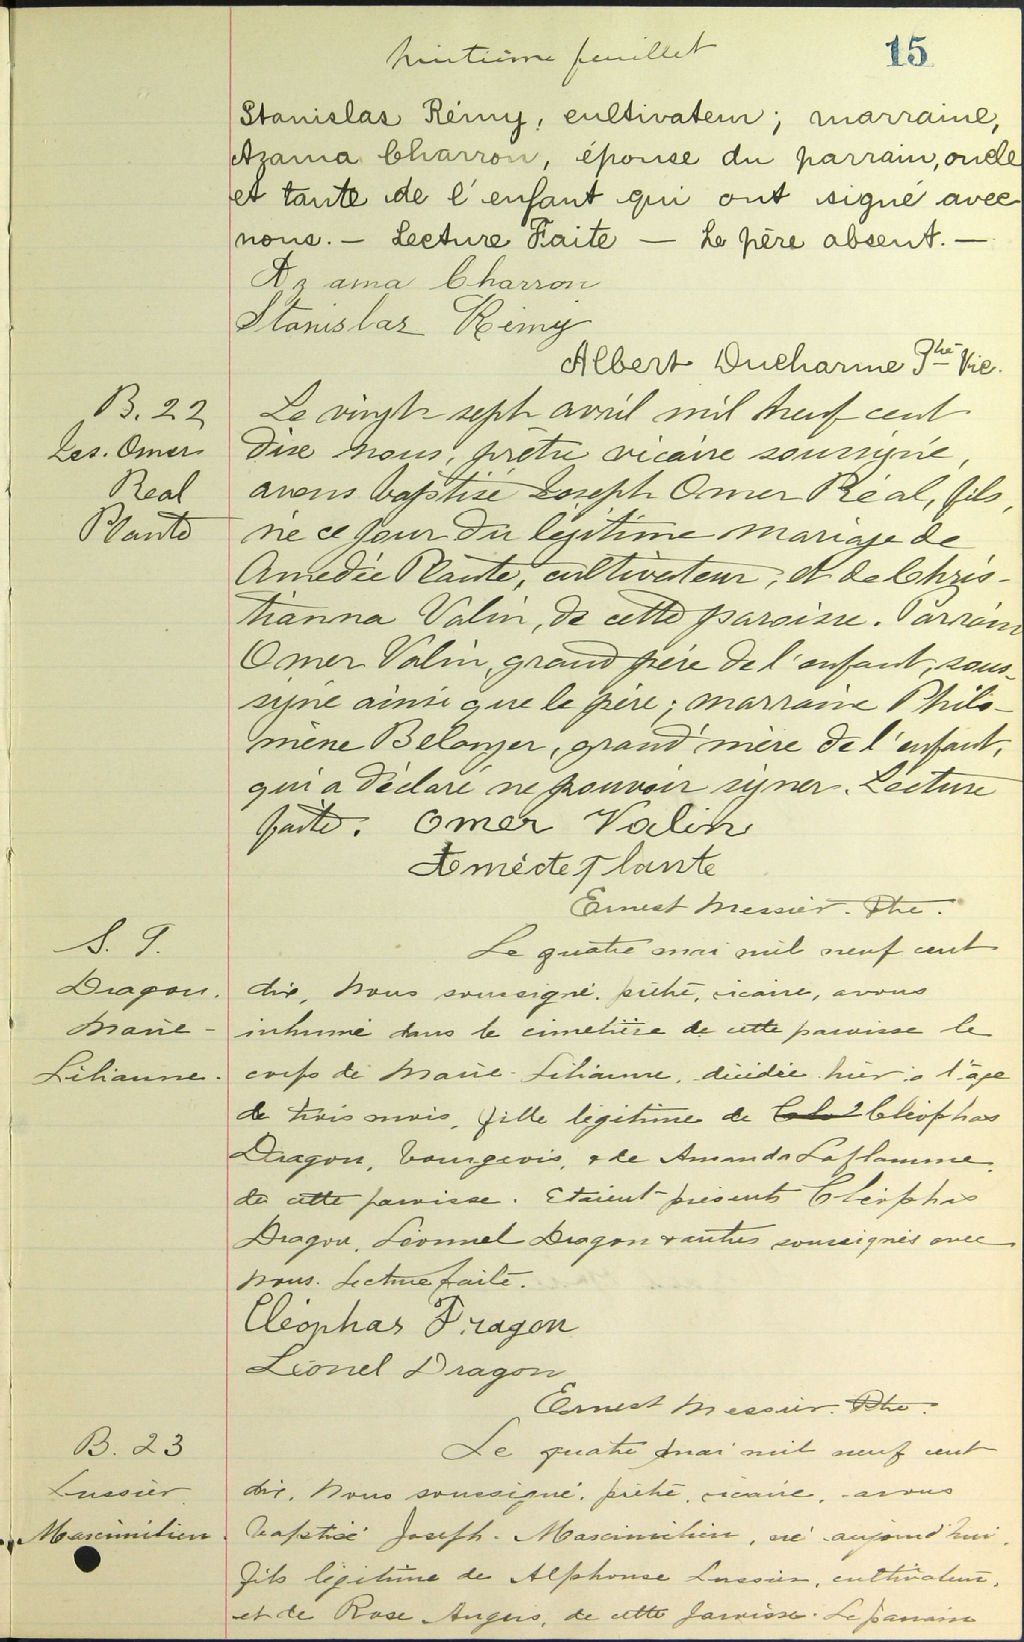 huitième feuillet
15
Stanislas Rémy, cultivateur; marraine,
Azama Charron, épouse du parrain, oncle
et tante de l'enfant qui ont signé avec
nous. — Lecture Faite — Le père absent. —
Azama Charron
Stanislas Rémy
Albert Ducharme Ptre Vic.
B. 22
Jos. Omer
Réal
Plante
Le vingt sept avril mil neuf cent
dix nous, prêtre vicaire soussigné,
avons baptisé Joseph Omer Réal, fils,
né ce jour du légitime mariage de
Amedée Plante, cultivateur, et de Chris-
tianna Valin, de cette paroisse. Parrain
Omer Valin, grand père de l'enfant, sous-
signé ainsi que le père; marraine Philo-
mène Belanger, grand'mère de l'enfant,
qui a déclaré ne pouvoir signer. Lecture
faite. Omer Valin
Amédé Plante
Ernest Messier. Ptre.
S. 9.
Dragon.
Marie-
Lilianne.
Le quatre mai mil neuf cent
dix, Nous soussigné, prêtre, vicaire, avons
inhumé dans le cimetière de cette paroisse le
corps de Marie-Lilianne, décédée hier à l'âge
de trois mois, fille légitime de Cléophas
Dragon, bourgeois, & de Amanda Laflamme,
de cette paroisse. Etaient présents Cléophas
Dragon, Léonnel Dragon & autres soussignés avec
nous. Lecture faite.
Cléophas Dragon
Léonel Dragon
Ernest Messier. Ptre.
B. 23
Lussier
Mascimilien.
Le quatre mai mil neuf cent
dix, Nous soussigné, prêtre, vicaire, avons
baptisé Joseph-Mascimilien, né aujourd'hui,
fils légitime de Alphonse Lussier, cultivateur,
et de Rose Angers, de cette paroisse. Le parrain